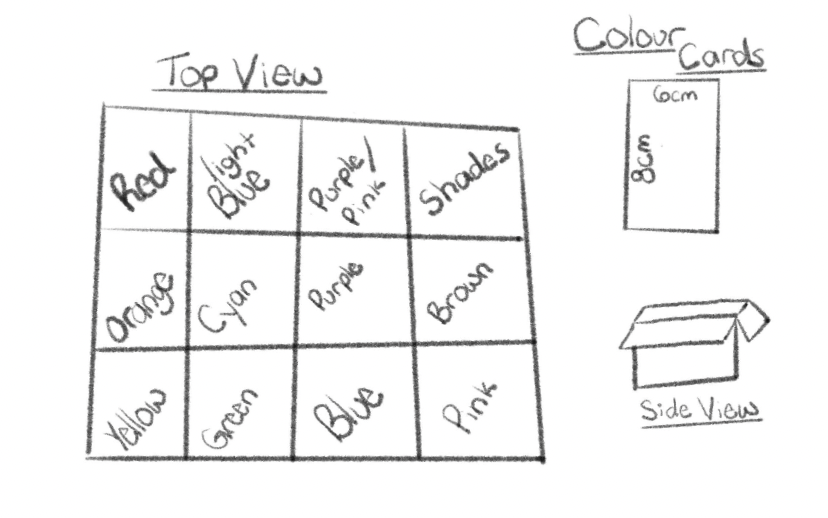 Top View
Red
light
Blue
Purple/
Pink
Shades
Orange
Cyan
Purple
Brown
Yellow
Green
Blue
Pink
Colour
Cards
6cm
8cm
Side View